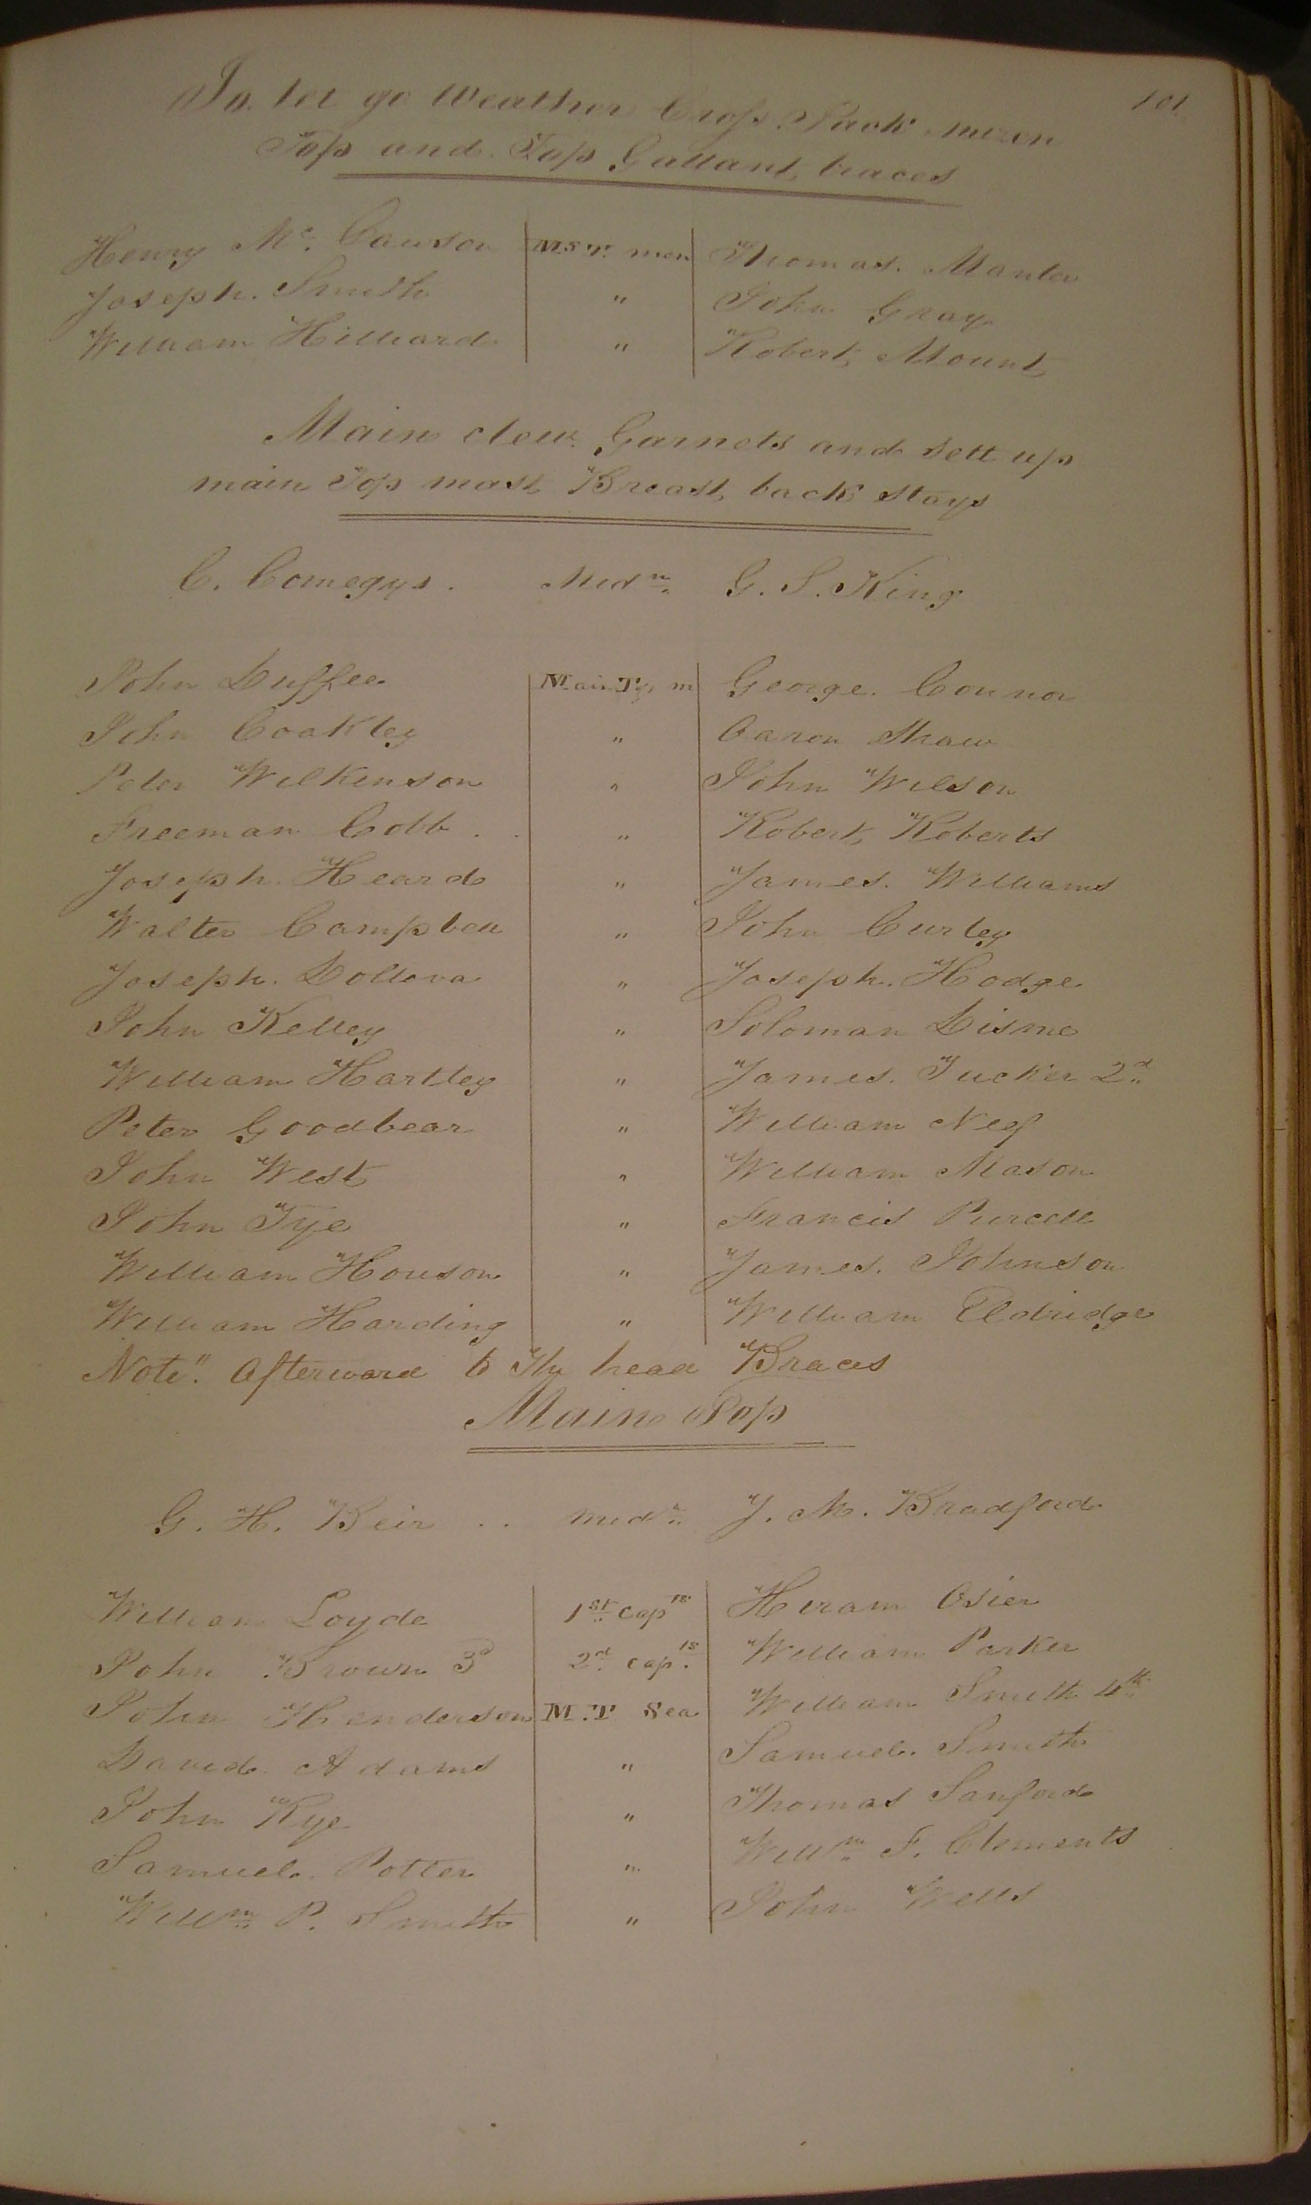 101
To let go Weather Cross Jack mizen
Top and Top Gallant braces
Henry Mc. Cawson M S T. men Thomas. Manter
Joseph. Smith " John Gray
William Hilliard " Robert Mount
Main clew Garnets and sett up
main Top mast Breast back stays
C. Comegys. Midn. G. S. King
John Duffee Main Tp m George. Connor
John Coakley " Aaron Shaw
Peter Wilkinson " John Wilson
Freeman Cobb . . " Robert Roberts
Joseph Heard " James. Williams
Walter Campbell " John Curley
Joseph. Dollova " Joseph. Hodge
John Kelley " Soloman Disme
William Hartley " James. Tucker 2d
Peter Goodbear " William Neef
John West " William Mason
John Tye " Francis Purcell
William Houson " James. Johnson
William Harding " William Eldridge
Note". Afterward to The head Braces
Main Top
G. H. Beir .. midn. J. M. Bradford
William Loyde 1st Caps Hiram Osier
John Brown 3d 2d. caps. William Parker
John Henderson M. T Sea William Smith 4th
David Adams " Samuel. Smith
John Kye " Thomas Sanford
Samuel. Potter " Willm F. Clements
Willm P. Smith " John Wells